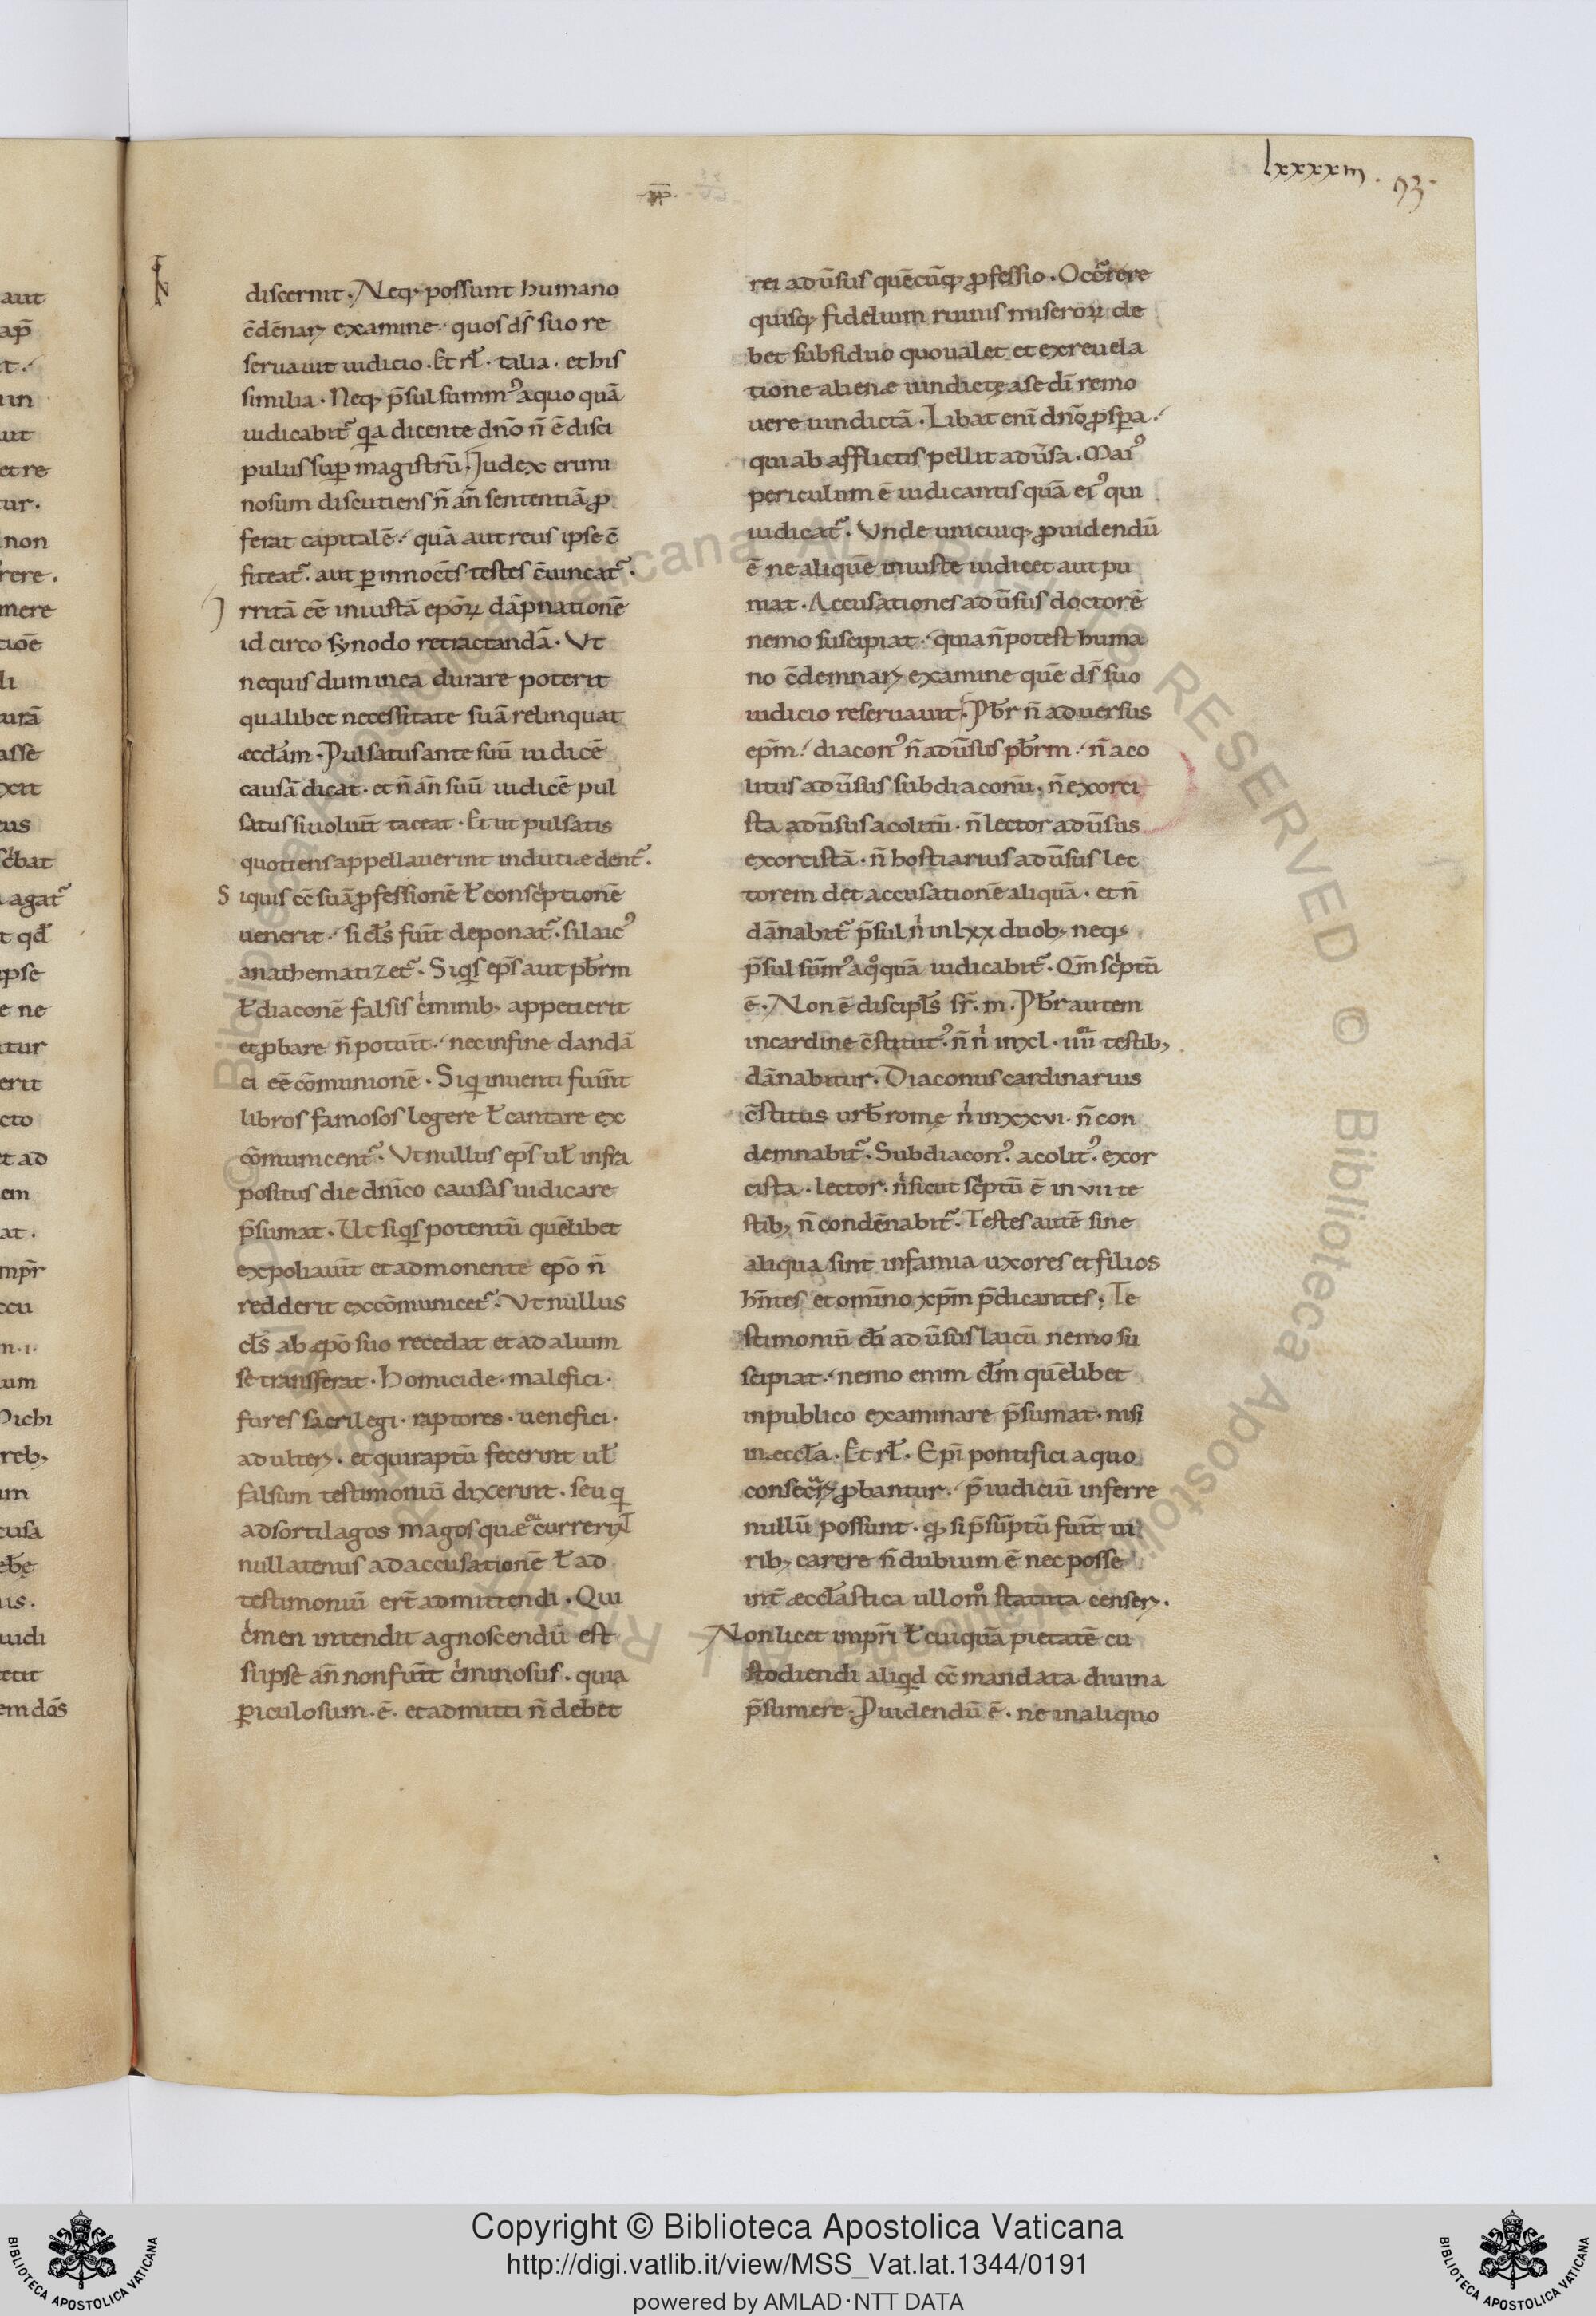 lxxxxiii. 93.
discernit. Neq; possunt humano
c̄dēnari examine. quos d̄s suo re
seruauit iudicio. Et rł. talia. et his
similia. Neq; p̄sul summꝰ a quo quā
iudicabit̄ qia dicente dn̄o n̄ ē disci
pulus sup̄ magistrū. Iudex crimi
nosum discutiens n̄ an̄ sententiā ꝓ
ferat capitalē. quā aut reus ipse c̄
fiteat̄. aut ꝑ innocēs testes c̄uincat̄.
Irritā eē iniustā ep̄oꝝ dāpnationē
id circo synodo retractandā. Vt
nequis dum in ea durare poterit
qualibet necessitate suā relinquat
æccłam. Pulsatus ante suū iudicē
causā dicat. et n̄ an̄ suū iudicē pul
satus si uoluit̄ taceat. Et ut pulsatis
quotiens appellauerint indutiæ dent̄.
Siquis cc̄ suā ꝓfessionē ł consc̍ptionē
uenerit. si cłs fuit̄ deponat̄. si laicꝰ
anathematizet̄. Siqis ep̄s aut pb̄rm
ł diaconē falsis c̍minib; appetierit
et ꝓbare n̄ potuit̄. nec in fine dandā
ei eē cōmunionē. Siqi inuenti fuin̄t
libros famosos legere ł cantare ex
cōmunicent̄. Vt nullus ep̄s uł infra
positus die dn̄ico causas iudicare
p̄sumat. Ut siqis potentū quēlibet
expoliauit̄ et admonente ep̄o n̄
redderit excōmunicet̄. Vt nullus
cłs ab æp̄o suo recedat et ad alium
se transferat. Homicide. malefici.
fures sacrilegi. raptores. uenefici.
adulteri. et qui raptū fecerint uł
falsum testimoniū dixerint. seu qi
ad sortilagos magosquæ c̃urrerint
nullatenus ad accusationē ł ad
testimoniū ert̄ admittendi. Qui
c̍men intendit agnoscendū est
si ipse an̄ non fuit̄ c̍minosus. quia
ꝑiculosum. ē. et admitti n̄ debet
rei adūsus quēcūq; ꝓfessio. Occ̃rere
quisq; fidelium ruinis miseroꝝ de
bet subsiduo quo ualet et ex reuela
tione alienæ uindictę a se dī remo
uere uindictā. Libat enī dn̄o ꝓspa.
qui ab afflictis pellit adūsa. Maiꝰ
periculum ē iudicantis quā eiꝰ qui
iudicat̄. Vnde unicuiq; ꝓuidendū
ē ne aliquē iniuste iudicet aut pu
niat. Accusationes adūsus doctorē
nemo suscipiat. quia n̄ potest huma
no c̄demnari examine quē d̄s suo
iudicio reseruauit. Pb̄r n̄ aduersus
ep̄m. diaconꝰ n̄ adūsus pb̄rm. n̄ aco
litus adūsus subdiaconū. n̄ exorci
sta adūsus acolitū. n̄ lector adūsus
exorcistā. n̄ hostiarius adūsus lec
torem det accusationē aliquā. et n̄
dānabit̄ p̄sul n̍ in lxx duob; neq;
p̄sul sūmꝰ a qͦ quā iudicabit̄. Qm̄ sc̍ptū
ē. Non ē discipłs sr̄. m. Pb̄r autem
in cardine c̄stitutꝰ. n̄ n̍ in xl. iiii testib;
dānabitur. Diaconus cardinarius
c̄stitus urb̄ romę n̍ in xxvi. n̄ con
demnabit̄. Subdiaconꝰ. acolitꝰ. exor
cista. lector. n̍ sicut sc̍ptū ē in vii te
stib; n̄ condēnabit̄. Testes autē sine
aliqua sint infamia uxores et filios
hn̄tes et omīno xp̄m p̄dicantes; Te
stimoniū cłi adūsus laicū nemo su
scipiat. nemo enim cłm quēlibet
in publico examinare p̄sumat. nisi
in æccła. Et rł. Epī pontifici a quo
consecr̃i ꝓbantur. p̄iudiciū inferre
nullū possunt. qͣ si p̄sūptū fuit̄ ui
rib; carere n̄ dubium ē nec posse
int̄ æccłastica ullomͦ statuta censeri.
Non licet impr̄i ł cuiquā pietatē cu
stodienti aliqid cc̄ mandata diuina
p̄sumere. Ꝓuidendū ē. ne in aliquo
Copyright © Biblioteca Apostolica Vaticana
http://digi.vatlib.it/view/MSS_Vat.lat.1344/0191
powered by AMLAD·NTT DATA